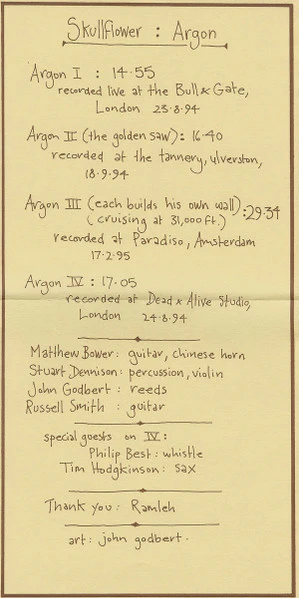 Skullflower : Argon
Argon I : 14.55
recorded live at the Bull & Gate,
London 23.8.94
Argon II (the golden saw): 16.40
recorded at the tannery, ulverston,
18.9.94
Argon III (each builds his own wall) :29.34
(cruising at 31,000 ft.)
recorded at Paradiso, Amsterdam
17.2.95
Argon IV : 17.05
recorded at Dead & Alive Studio,
London 24.8.94
Matthew Bower : guitar, chinese horn
Stuart Dennison : percussion, violin
John Godbert : reeds
Russell Smith : guitar
special guests on IV:
Philip Best : whistle
Tim Hodgkinson : sax
Thank you : Ramleh
art : john godbert.